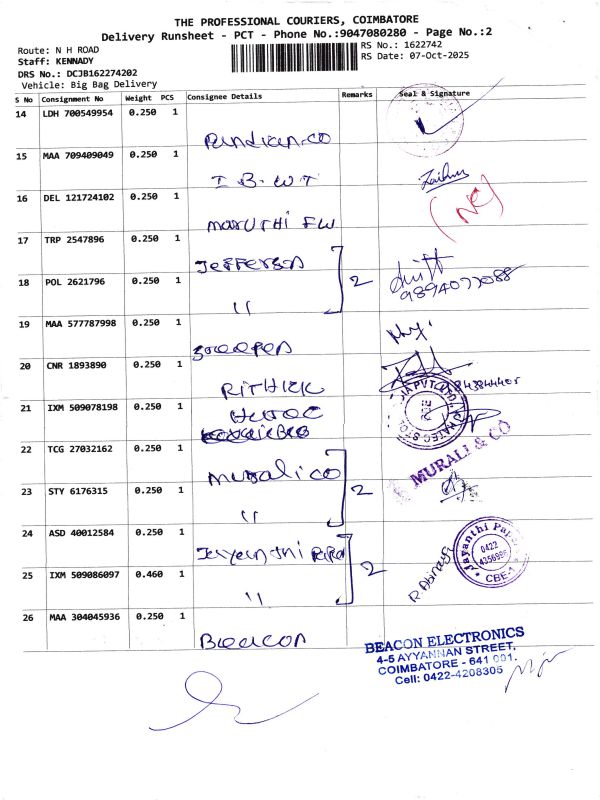 THE PROFESSIONAL COURIERS, COIMBATORE
Delivery Runsheet - PCT - Phone No.:9047080280 - Page No.:2
Route: N H ROAD
RS No.: 1622742
Staff: KENNADY
RS Date: 07-Oct-2025
DRS No.: DCJB162274202
Vehicle: Big Bag Delivery
S No Consignment No Weight PCS Consignee Details Remarks Seal & Signature
14 LDH 700549954 0.250 1
Pandian.co
15 MAA 709409049 0.250 1
I B W T
16 DEL 121724102 0.250 1
maruthi FW
17 TRP 2547896 0.250 1
Jefferson
18 POL 2621796 0.250 1 2
" 9894077088
19 MAA 577787998 0.250 1
20 CNR 1893890 0.250 1
RITHICK
21 IXM 509078198 0.250 1
22 TCG 27032162 0.250 1
murali co MURALI & CO
23 STY 6176315 0.250 1 2
"
24 ASD 40012584 0.250 1
Jayanthi
Jayanthi 0422 CBE-1
25 IXM 509086097 0.460 1 2
" R. Abinaya
26 MAA 304045936 0.250 1
Beacon
BEACON ELECTRONICS
4-5 AYYANNAN STREET,
COIMBATORE - 641 001.
Cell: 0422-4208305